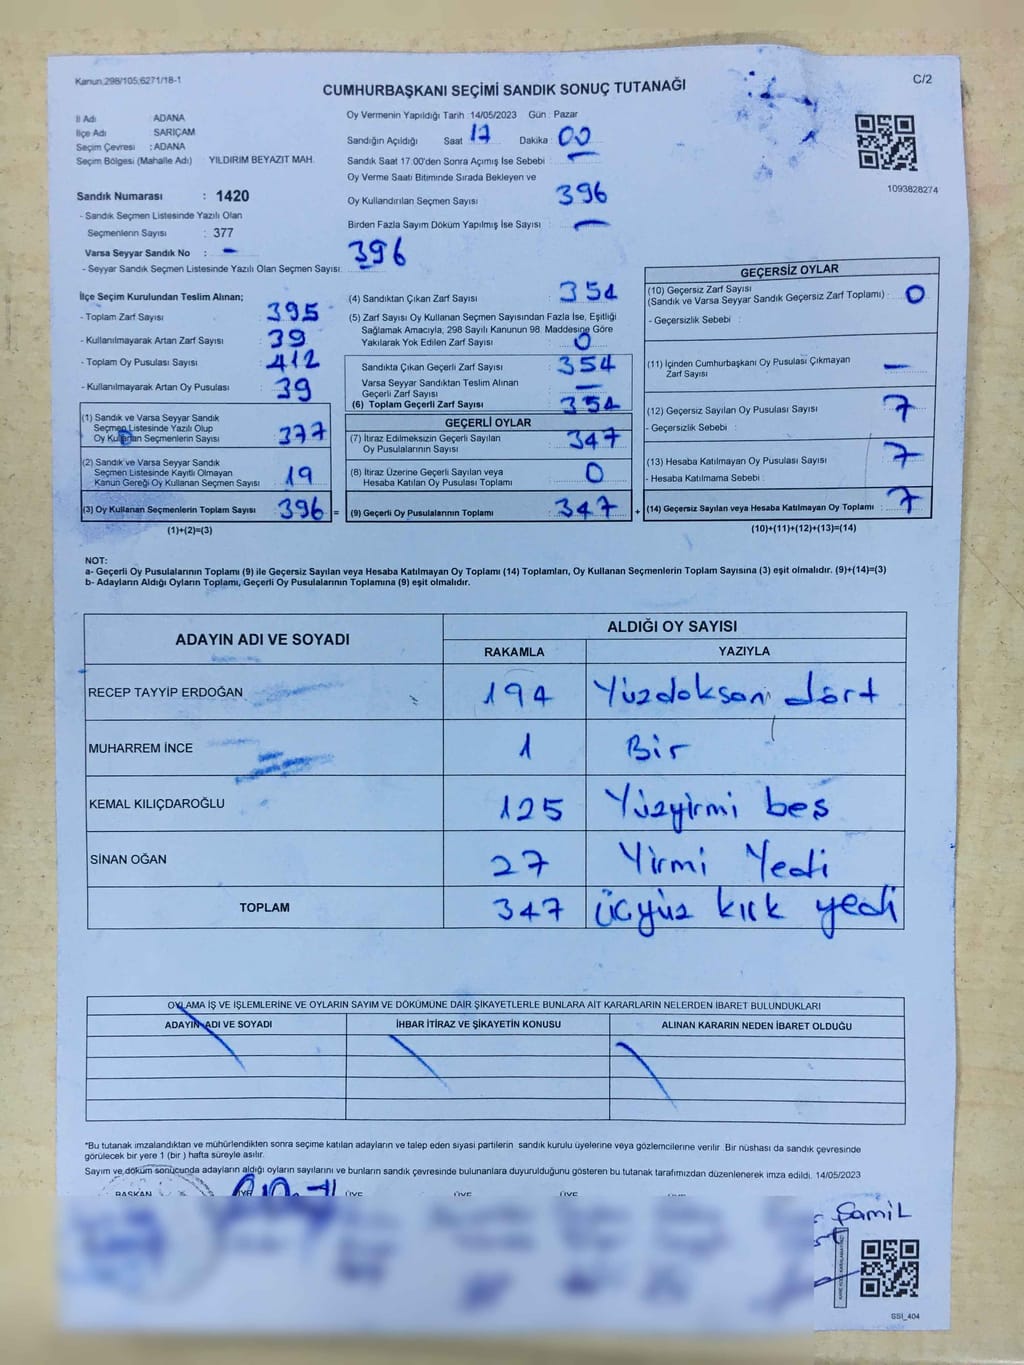 Kanun:298/105;6271/18-1
C/2
CUMHURBAŞKANI SEÇİMİ SANDIK SONUÇ TUTANAĞI
İl Adı ADANA
İlçe Adı : SARIÇAM
Seçim Çevresi : ADANA
Seçim Bölgesi (Mahalle Adı) YILDIRIM BEYAZIT MAH.
Sandık Numarası : 1420
- Sandık Seçmen Listesinde Yazılı Olan
Seçmenlerin Sayısı : 377
Varsa Seyyar Sandık No : -
- Seyyar Sandık Seçmen Listesinde Yazılı Olan Seçmen Sayısı: 396
Oy Vermenin Yapıldığı Tarih : 14/05/2023 Gün : Pazar
Sandığın Açıldığı Saat 17 Dakika : 00
Sandık Saat 17.00'den Sonra Açımış İse Sebebi : -
Oy Verme Saati Bitiminde Sırada Bekleyen ve
Oy Kullandırılan Seçmen Sayısı : 396
Birden Fazla Sayım Döküm Yapılmış İse Sayısı : -
1093828274
İlçe Seçim Kurulundan Teslim Alınan;
- Toplam Zarf Sayısı : 395
- Kullanılmayarak Artan Zarf Sayısı : 39
- Toplam Oy Pusulası Sayısı : 412
- Kullanılmayarak Artan Oy Pusulası : 39
(1) Sandık ve Varsa Seyyar Sandık
Seçmen Listesinde Yazılı Olup
Oy Kullanan Seçmenlerin Sayısı : 377
(2) Sandık ve Varsa Seyyar Sandık
Seçmen Listesinde Kayıtlı Olmayan
Kanun Gereği Oy Kullanan Seçmen Sayısı : 19
(3) Oy Kullanan Seçmenlerin Toplam Sayısı : 396 =
(1)+(2)=(3)
(4) Sandıktan Çıkan Zarf Sayısı : 354
(5) Zarf Sayısı Oy Kullanan Seçmen Sayısından Fazla İse, Eşitliği
Sağlamak Amacıyla, 298 Sayılı Kanunun 98. Maddesine Göre
Yakılarak Yok Edilen Zarf Sayısı : 0
Sandıkta Çıkan Geçerli Zarf Sayısı : 354
Varsa Seyyar Sandıktan Teslim Alınan
Geçerli Zarf Sayısı : -
(6) Toplam Geçerli Zarf Sayısı : 354
GEÇERLİ OYLAR
(7) İtiraz Edilmeksizin Geçerli Sayılan
Oy Pusulasının Sayısı : 347
(8) İtiraz Üzerine Geçerli Sayılan veya
Hesaba Katılan Oy Pusulası Toplamı : 0
(9) Geçerli Oy Pusulalarının Toplamı : 347 +
GEÇERSİZ OYLAR
(10) Geçersiz Zarf Sayısı
(Sandık ve Varsa Seyyar Sandık Geçersiz Zarf Toplamı) : 0
- Geçersizlik Sebebi :
(11) İçinden Cumhurbaşkanı Oy Pusulası Çıkmayan
Zarf Sayısı : -
(12) Geçersiz Sayılan Oy Pusulası Sayısı : 7
- Geçersizlik Sebebi :
(13) Hesaba Katılmayan Oy Pusulası Sayısı : 7
- Hesaba Katılmama Sebebi :
(14) Geçersiz Sayılan veya Hesaba Katılmayan Oy Toplamı : 7
(10)+(11)+(12)+(13)=(14)
NOT:
a- Geçerli Oy Pusulalarının Toplamı (9) ile Geçersiz Sayılan veya Hesaba Katılmayan Oy Toplamı (14) Toplamları, Oy Kullanan Seçmenlerin Toplam Sayısına (3) eşit olmalıdır. (9)+(14)=(3)
b- Adayların Aldığı Oyların Toplamı, Geçerli Oy Pusulalarının Toplamına (9) eşit olmalıdır.
ADAYIN ADI VE SOYADI
ALDIĞI OY SAYISI
RAKAMLA YAZIYLA
RECEP TAYYİP ERDOĞAN 194 Yüzdoksan dört
MUHARREM İNCE 1 Bir
KEMAL KILIÇDAROĞLU 125 Yüzyirmi beş
SİNAN OĞAN 27 Yirmi Yedi
TOPLAM 347 üçyüz kırk yedi
OYLAMA İŞ VE İŞLEMLERİNE VE OYLARIN SAYIM VE DÖKÜMÜNE DAİR ŞİKAYETLERLE BUNLARA AİT KARARLARIN NELERDEN İBARET BULUNDUKLARI
ADAYIN ADI VE SOYADI İHBAR İTİRAZ VE ŞİKAYETİN KONUSU ALINAN KARARIN NEDEN İBARET OLDUĞU
*Bu tutanak imzalandıktan ve mühürlendikten sonra seçime katılan adayların ve talep eden siyasi partilerin sandık kurulu üyelerine veya gözlemcilerine verilir. Bir nüshası da sandık çevresinde
görülecek bir yere 1 (bir) hafta süreyle asılır.
Sayım ve döküm sonucunda adayların aldığı oyların sayılarını ve bunların sandık çevresinde bulunanlara duyurulduğunu gösteren bu tutanak tarafımızdan düzenlenerek imza edildi. 14/05/2023
BAŞKAN ÜYE ÜYE ÜYE ÜYE ÜYE
Şamil
SSI_404